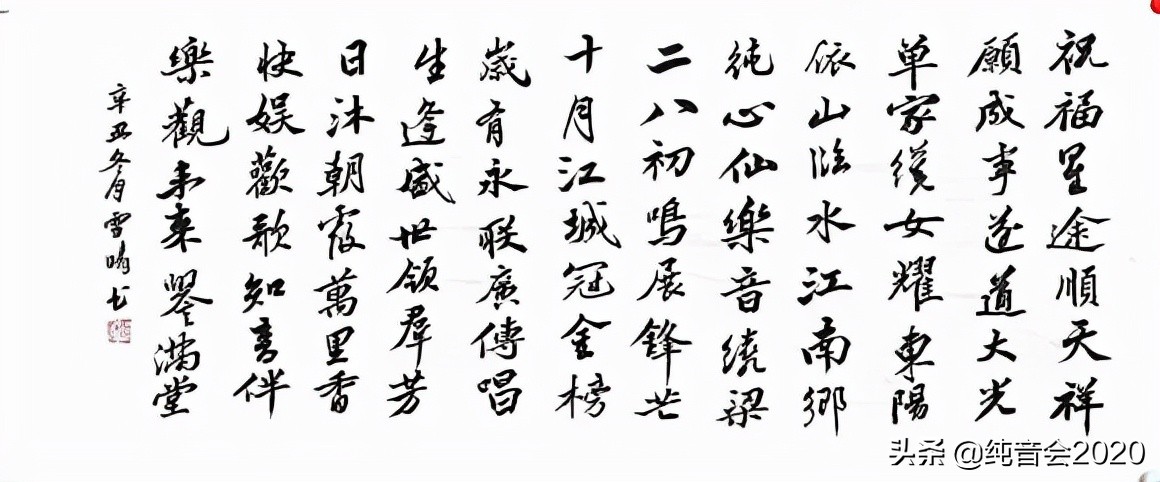 祝福星途順天祥
願成事遂道大光
单家女耀東陽
依山臨水江南鄉
純心仙樂音繞梁
二八初鳴展鋒芒
十月江城冠金榜
歲有永联廣傳唱
生逢盛世領羣芳
日沐朝霞萬里香
快娱歡歌知音伴
樂觀未來譽滿堂
辛丑冬月雪晴书
头条 @纯音会2020